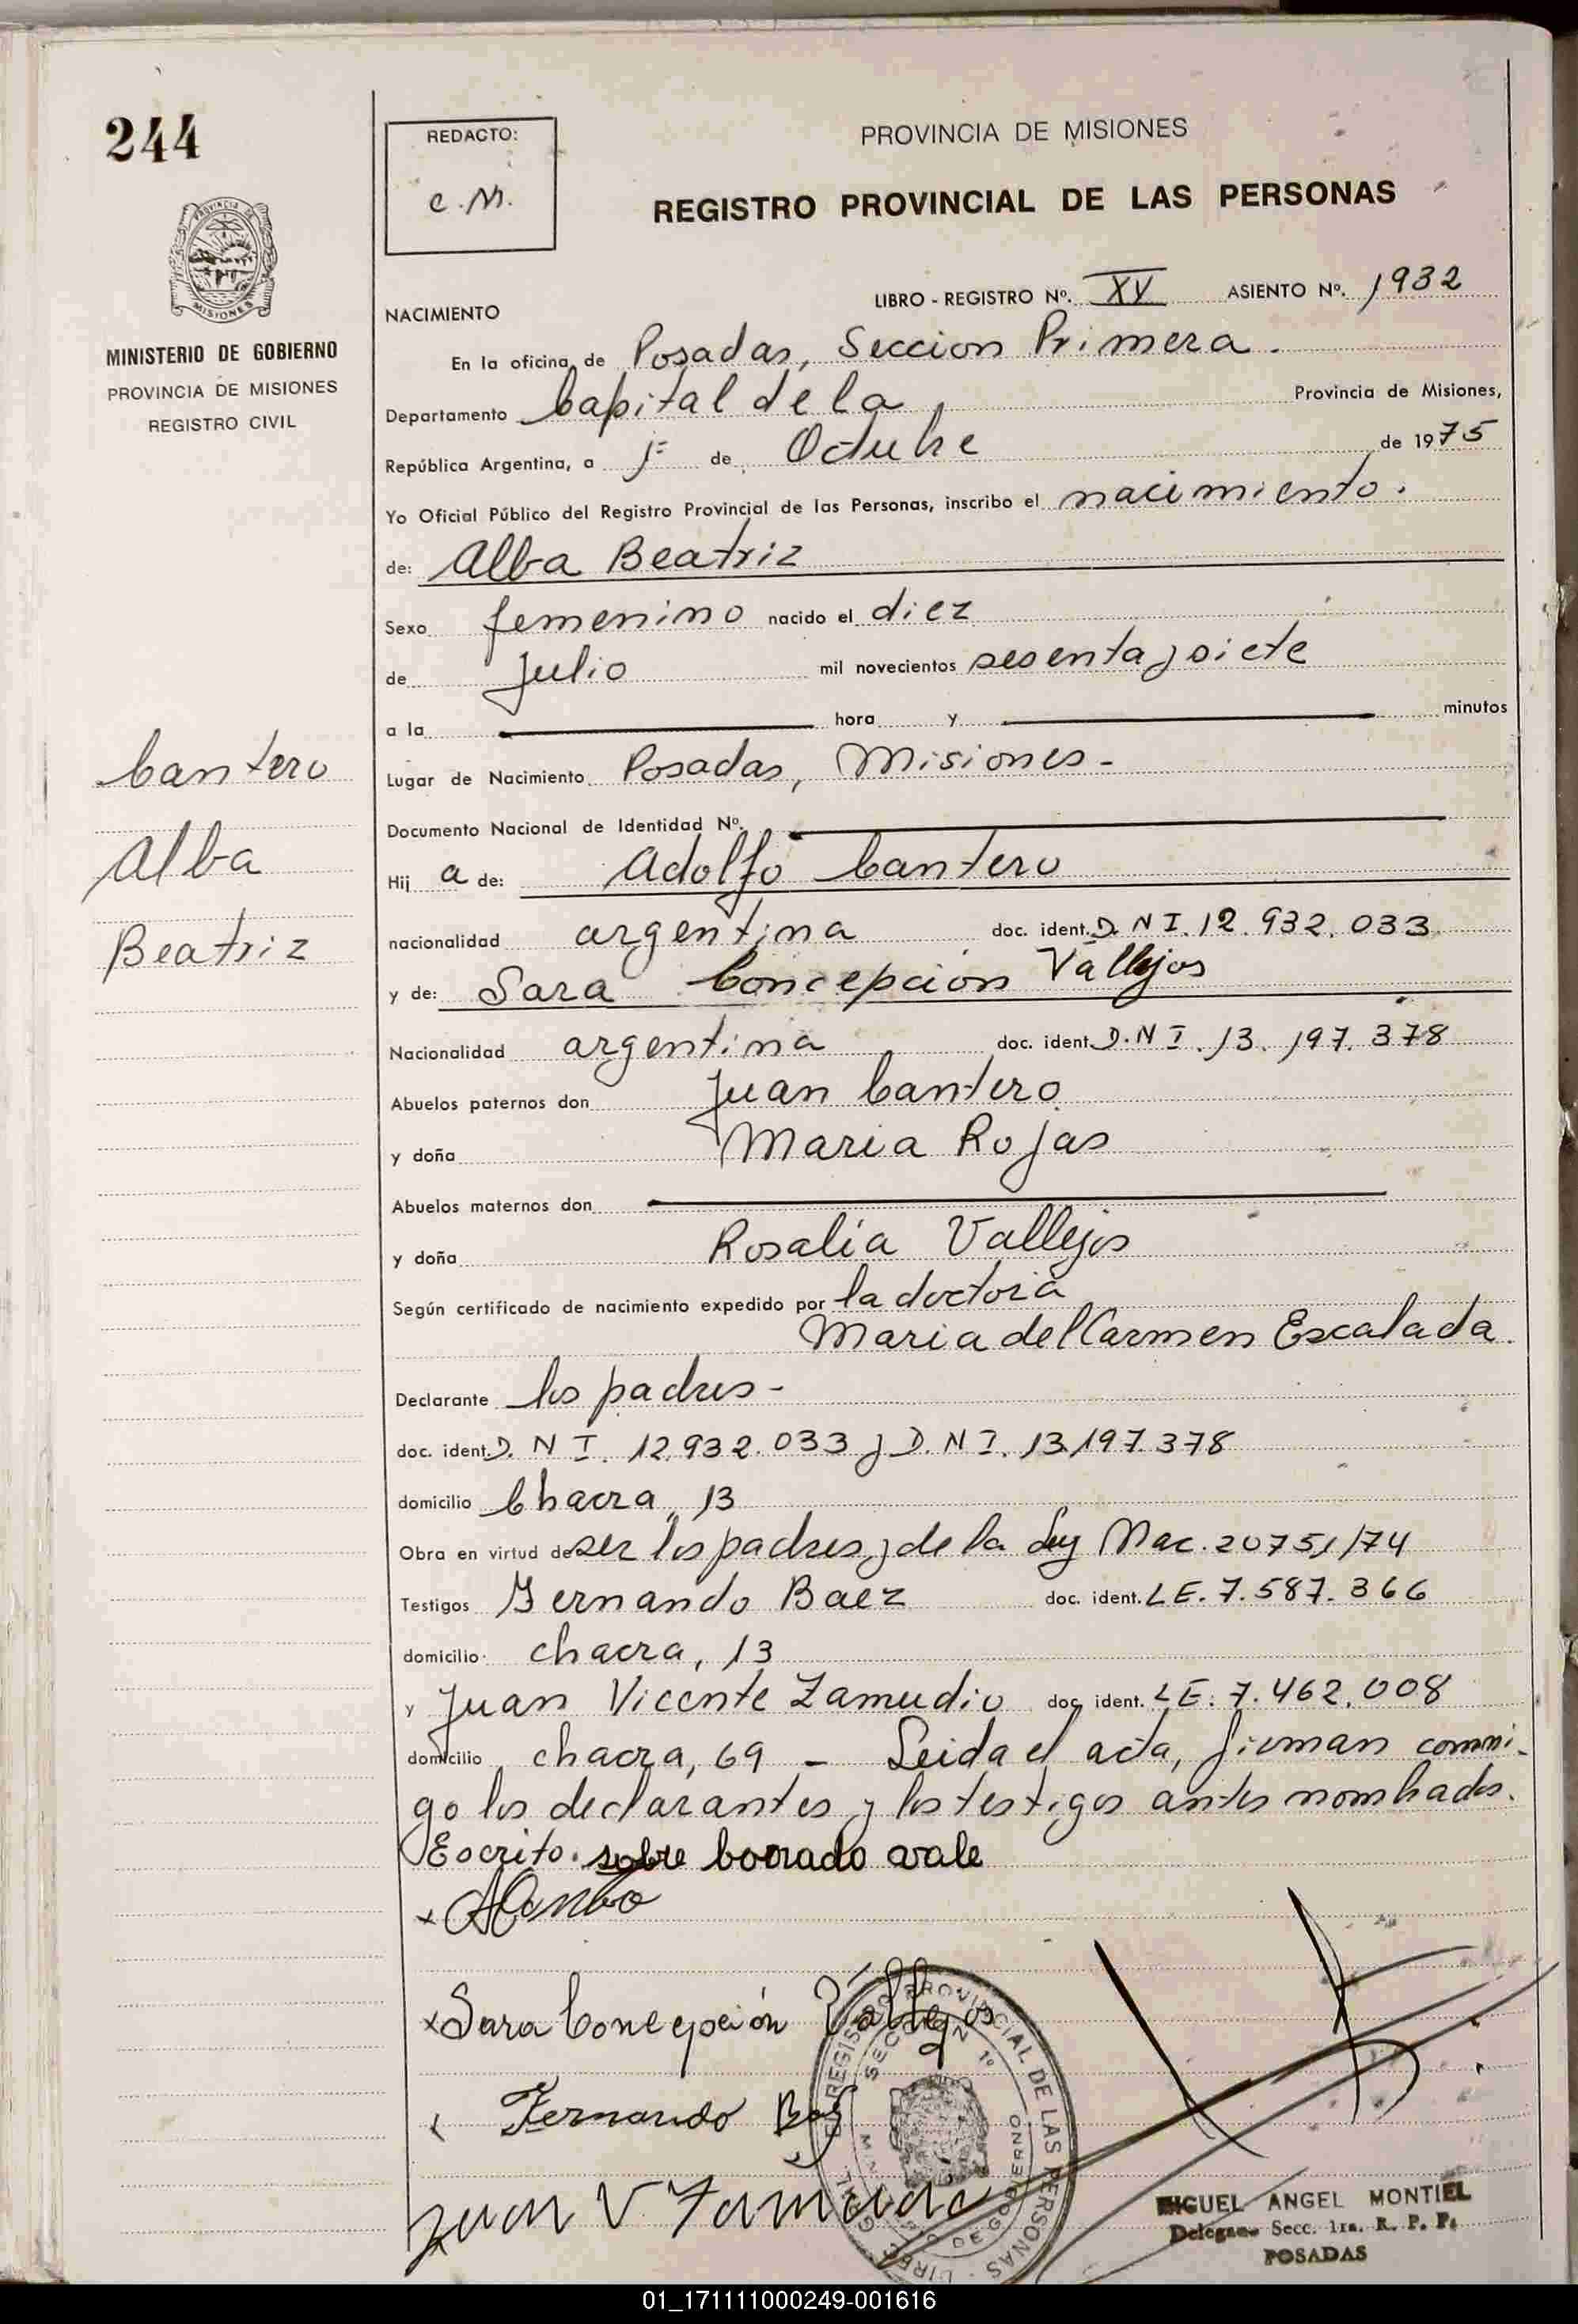 244
REDACTO:
C.M.
PROVINCIA DE MISIONES
REGISTRO PROVINCIAL DE LAS PERSONAS
PROVINCIA DE
MISIONES
MINISTERIO DE GOBIERNO
PROVINCIA DE MISIONES
REGISTRO CIVIL
LIBRO - REGISTRO Nº. XV ASIENTO Nº. 1932
NACIMIENTO
En la oficina de Posadas, Seccion Primera.
Departamento Capital de la Provincia de Misiones,
República Argentina, a 1º de Octubre de 1975
Yo Oficial Público del Registro Provincial de las Personas, inscribo el nacimiento.
de: Alba Beatriz
Sexo femenino nacido el diez
de Julio mil novecientos sesenta y siete
a la hora y minutos
Cantero
Alba
Beatriz
Lugar de Nacimiento Posadas, Misiones-
Documento Nacional de Identidad Nº.
Hij a de: Adolfo Cantero
nacionalidad argentina doc. ident. D.N I. 12.932.033
y de: Sara Concepción Vallejos
Nacionalidad argentina doc. ident. D.N I. 13.197.378
Abuelos paternos don Juan Cantero
y doña Maria Rojas
Abuelos maternos don
y doña Rosalía Vallejos
Según certificado de nacimiento expedido por la doctora
Maria del Carmen Escalada.
Declarante los padres-
doc. ident. D. N I. 12.932.033 y D.N I. 13.197.378
domicilio Chacra, 13
Obra en virtud de ser los padres y de la Ley Nac. 20751/74
Testigos Fernando Baez doc. ident. LE. 7.587.366
domicilio chacra, 13
y Juan Vicente Zamudio doc. ident. LE. 7.462.008
domicilio chacra, 69 - Leida el acta, firman conmi-
go los declarantes y los testigos antes nombrados.
Escrito. sobre borrado vale
x
x Sara Concepción Vallejos
Fernando Baez
Juan V Zamudio
REGISTRO PROVINCIAL DE LAS PERSONAS
SECCION 1º
DE GOBIERNO
MIGUEL ANGEL MONTIEL
Delegado Secc. 1ra. R. P. P.
POSADAS
01_171111000249-001616